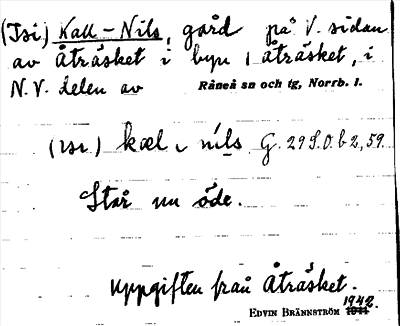 (Isi) Kall-Nils, gård på V. sidan
av Åträsket i byn Åträsket, i
N.V. delen av Råneå sn och tg, Norrb. l.
kæl nils G. 29 S.O. b 2, 59.
Står nu öde.
Uppgiften från Åträsket.
1942.
EDVIN BRÄNNSTRÖM 1941